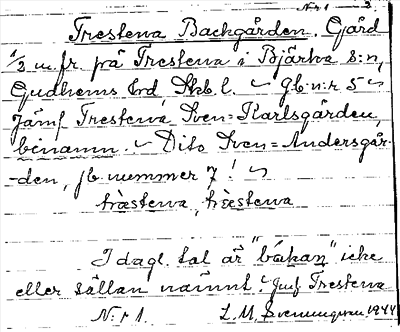 Nr 1
Trestena Backgården. Gård
1/2 m. fr. på Trestena i Bjärka s:n,
Gudhems hd, Skb. l. ~ Jb:n:r 5 ~
Jämf Trestena Sven=Karlsgården,
benämn. ~ Dito Sven=Andersgår-
-den, jb. nummer 7! ~
trästena, träestena
I dagl. tal är "bákan" icke
eller sällan nämnt. Jmf Trestena
N:r 1. L. M. Svenungsson 1944